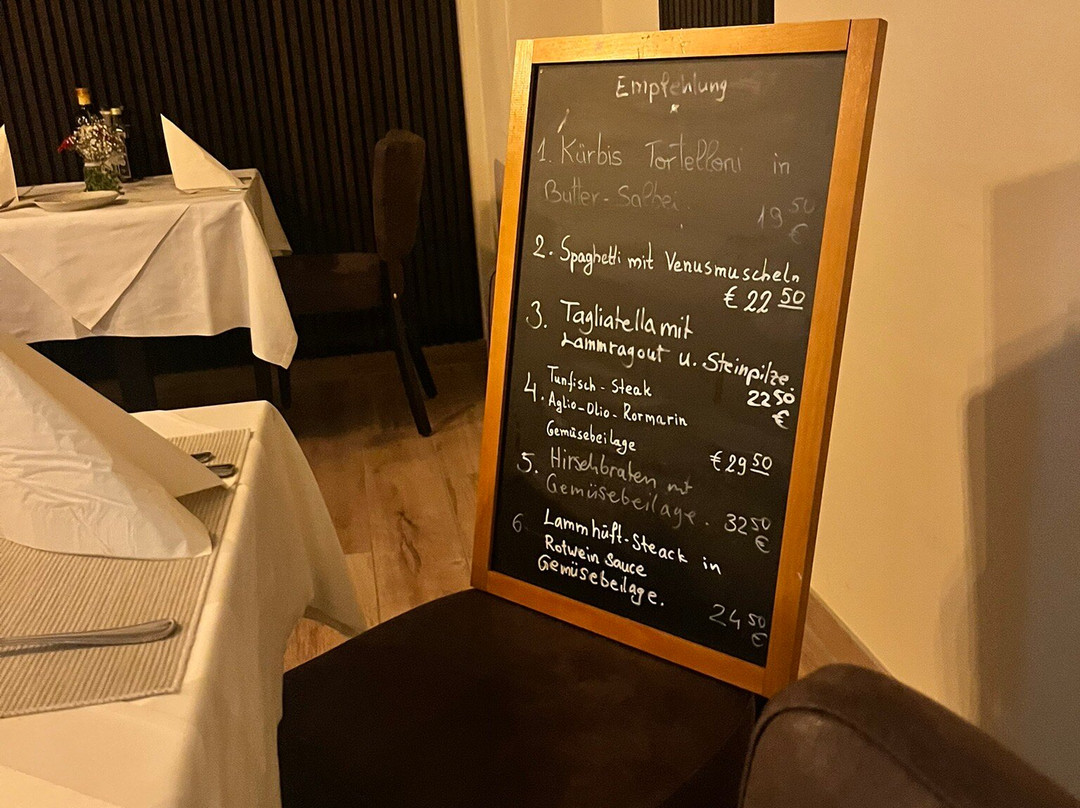 Empfehlung
1. Kürbis Tortelloni in
Butter-Salbei.
19 50 €
2. Spaghetti mit Venusmuscheln
€ 22 50
3. Tagliatella mit
Lammragout u. Steinpilze.
22 50 €
4. Tunfisch-Steak
Aglio-Olio-Rormarin
Gemüsebeilage
€ 29 50
5. Hirschbraten mit
Gemüsebeilage. 32 50 €
6. Lammhüft-Steack in
Rotwein Sauce
Gemüsebeilage.
24 50 €